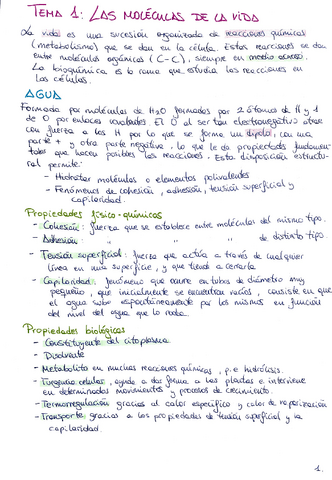 TEMA 1: LAS MOLÉCULAS DE LA VIDA
La vida es una sucesión organizada de reacciones químicas
(metabolismo) que se dan en la célula. Estas reacciones se dan
entre moléculas orgánicas (C-C), siempre en medio acuoso.
La bioquímica es la rama que estudia las reacciones en
las células.
AGUA
Formada por moléculas de H2O formadas por 2 átomos de H y 1
de O por enlaces covalentes. El O al ser tan electronegativo atrae
con fuerza a los H por lo que se forma un dipolo, con una
parte + y otra parte negativa, lo que le da propiedades fundamen-
tales que hacen posibles las reacciones. Esta disposición estructu-
ral permite:
- Hidratar moléculas o elementos polivalentes
- Fenómenos de cohesión, adhesión, tensión superficial y
capilaridad.
Propiedades físico-químicas
- Cohesión: fuerza que se establece entre moléculas del mismo tipo.
- Adhesión: " " " " de distinto tipo.
- Tensión superficial: fuerza que actúa a través de cualquier
línea en una superficie, y que tiende a cerrarla
- Capilaridad: fenómeno que ocurre en tubos de diámetro muy
pequeño, que inicialmente se encuentran vacíos, consiste en que
el agua sube espontáneamente por los mismos en función
del nivel del agua que lo rodea.
Propiedades biológicas
- Constituyente del citoplasma
- Disolvente
- Metabolito en muchas reacciones químicas, p.e. hidrólisis.
- Turgencia celular, ayuda a dar forma a las plantas e interviene
en determinados movimientos y procesos de crecimiento.
- Termorregulación gracias al calor específico y calor de vaporización
- Transporte gracias a las propiedades de tensión superficial y la
capilaridad.
1.